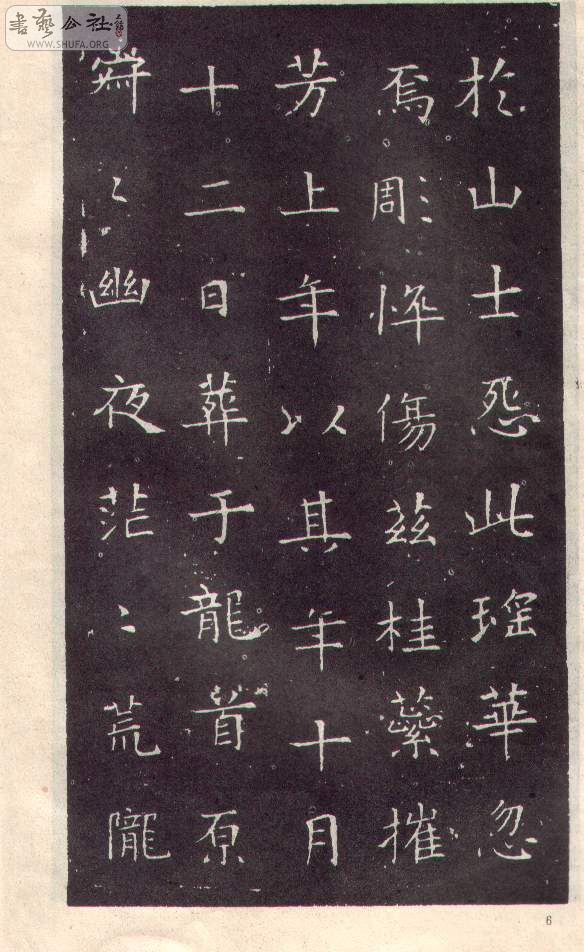 書藝公社
www.SHUFA.ORG
於山士怨此瑤華忽
焉彫悴傷茲桂蘂摧
芳上年以其年十月
十二日葬于龍首原
寂〻幽夜茫〻荒隴
6